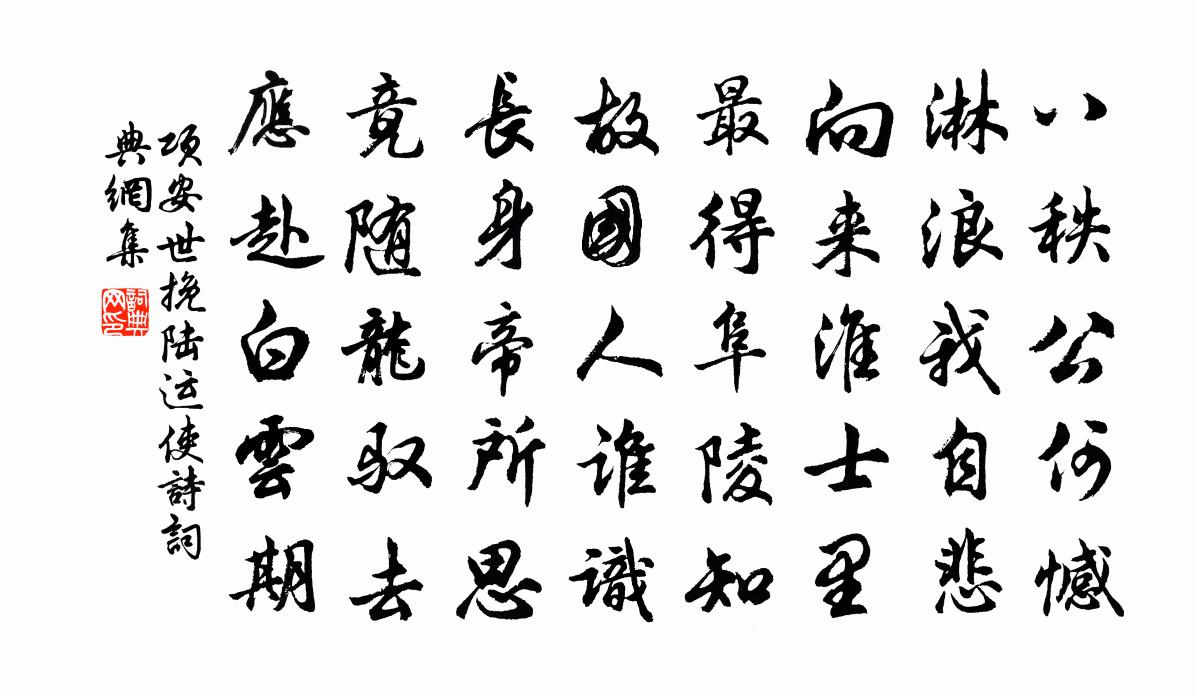 八秩公何憾
淋浪我自悲
向来淮士里
最得阜陵知
故國人谁識
長身帝所思
竟随龍驭去
應赴白雲期
项安世挽陆运使詩詞
典網集
詞典
网印